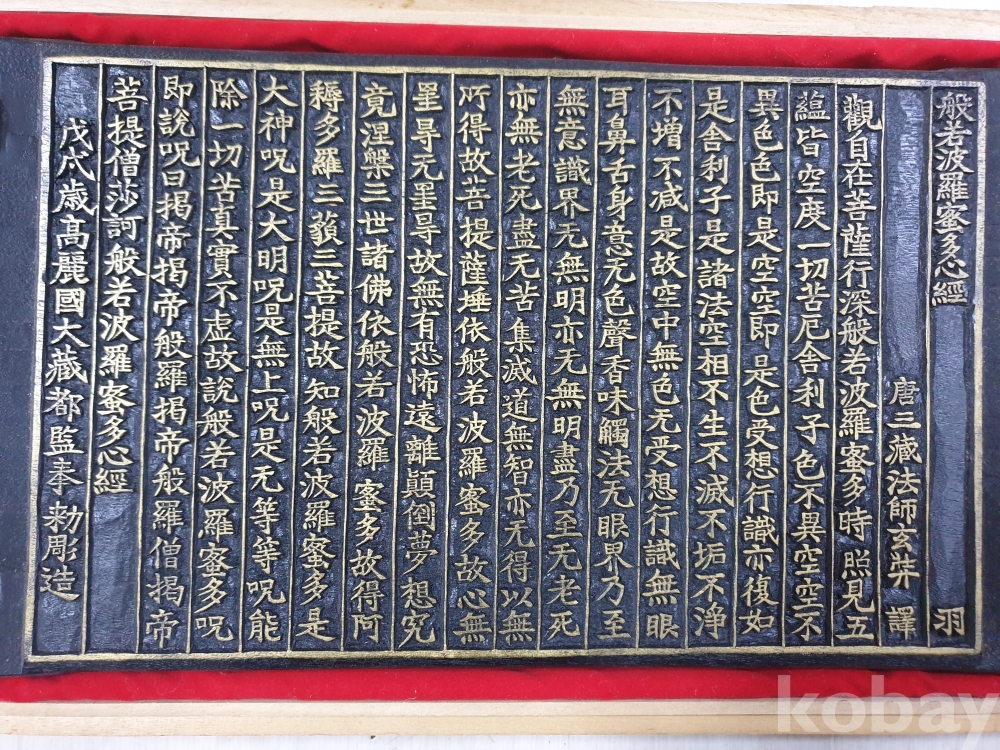 般若波羅蜜多心經 羽
唐三藏法師玄奘 譯
觀自在菩薩行深般若波羅蜜多時照見五
蘊皆空度一切苦厄舍利子色不異空空不
異色色即是空空即是色受想行識亦復如
是舍利子是諸法空相不生不滅不垢不淨
不增不減是故空中無色无受想行識無眼
耳鼻舌身意无色聲香味觸法无眼界乃至
無意識界无無明亦无無明盡乃至无老死
亦無老死盡无苦集滅道無智亦无得以無
所得故菩提薩埵依般若波羅蜜多故心無
罣㝵无罣㝵故無有恐怖遠離顛倒夢想究
竟涅槃三世諸佛依般若波羅蜜多故得阿
耨多羅三藐三菩提故知般若波羅蜜多是
大神呪是大明呪是無上呪是无等等呪能
除一切苦真實不虛故說般若波羅蜜多呪
即說呪曰揭帝揭帝般羅揭帝般羅僧揭帝
菩提僧莎訶般若波羅蜜多心經
戊戌歲高麗國大藏都監奉勅彫造
kobay